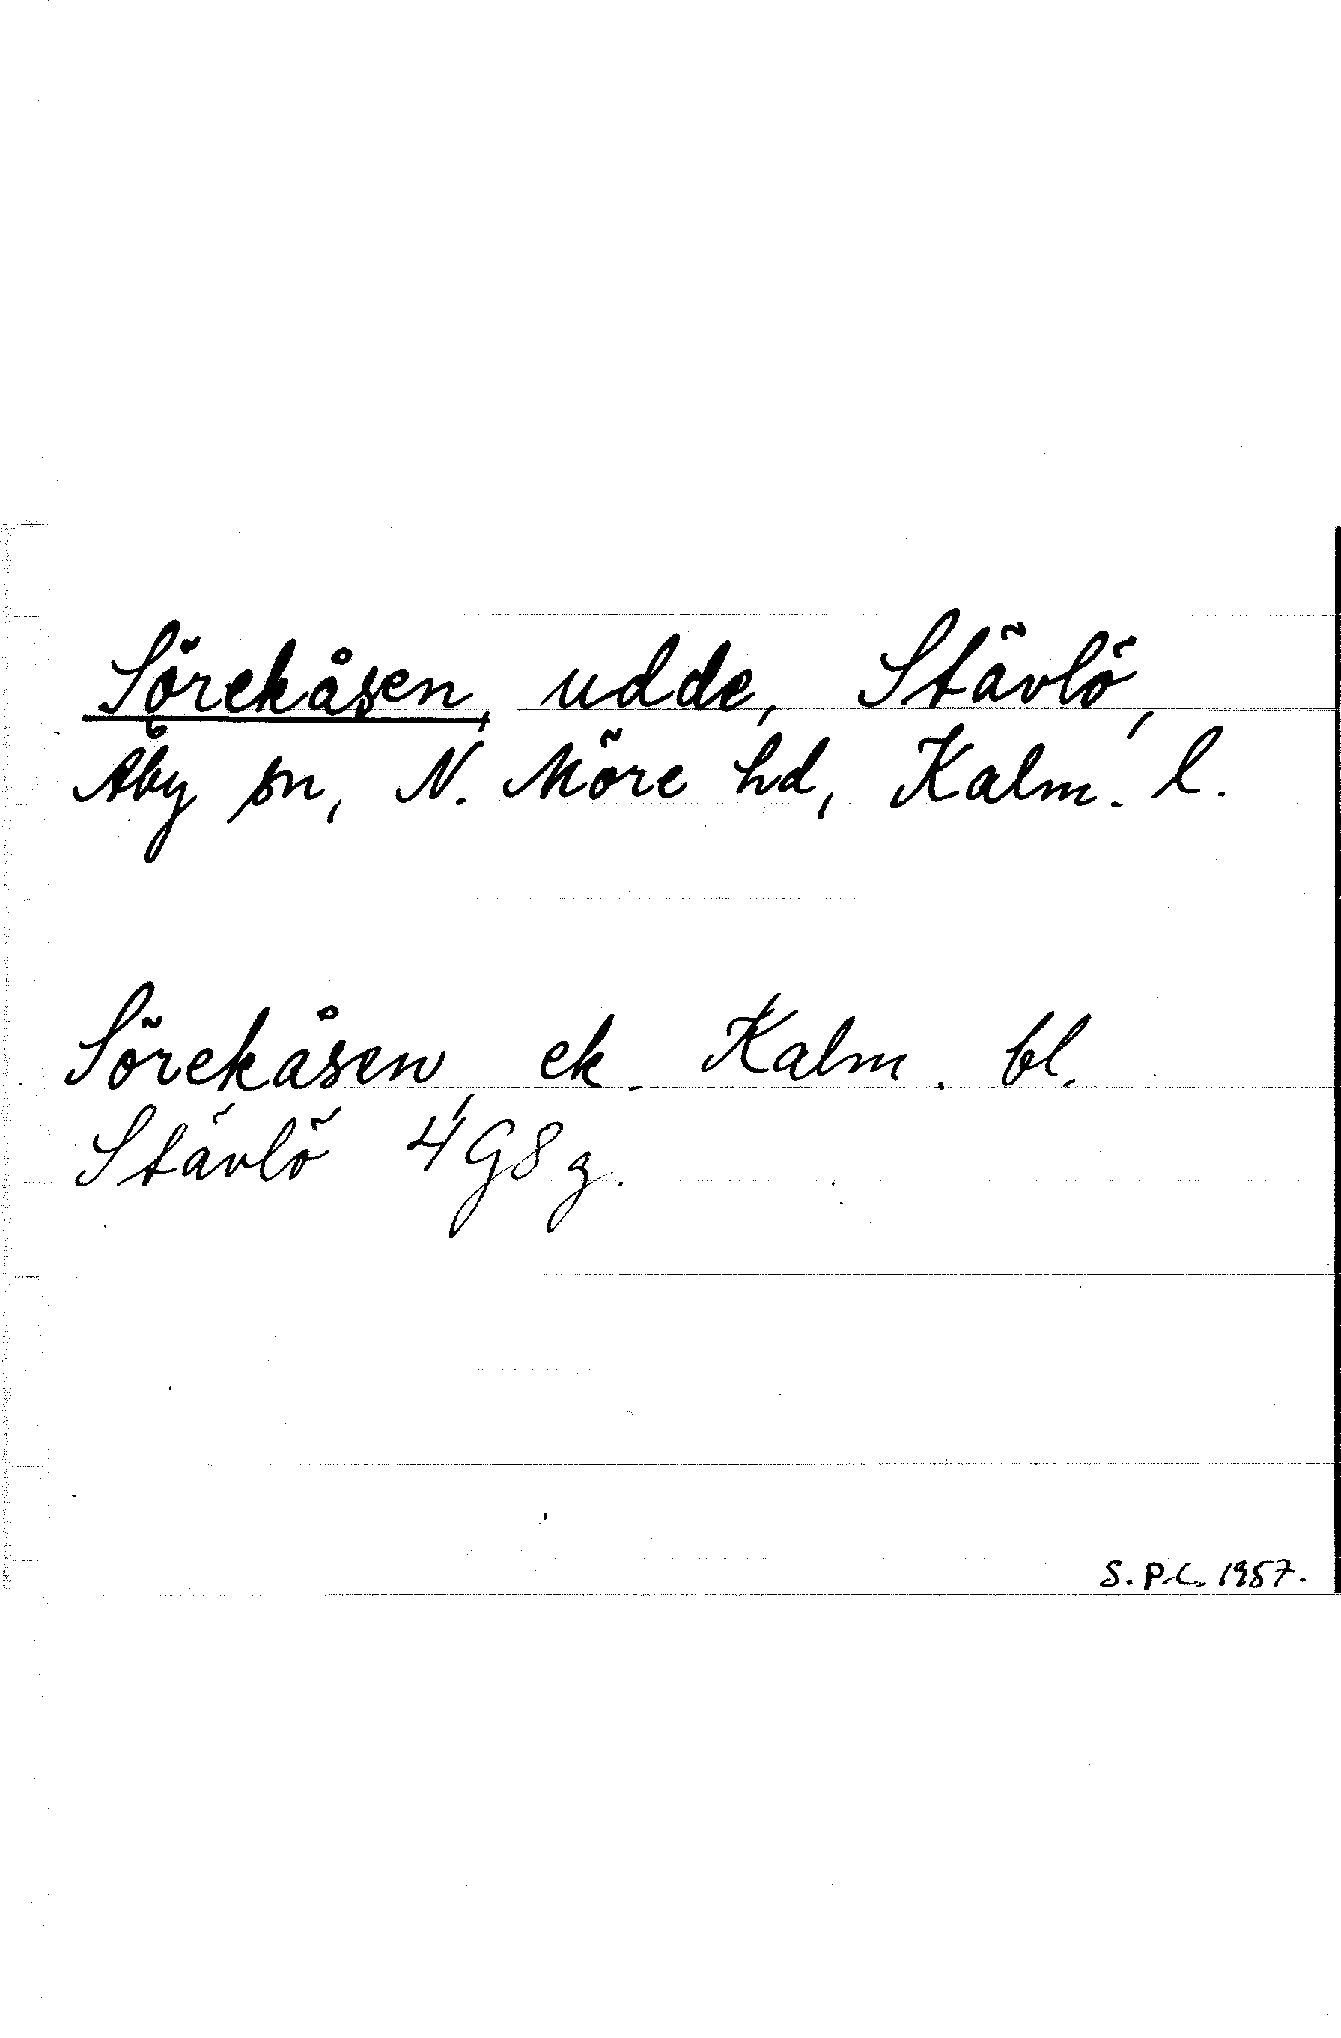 Sörekåsen, udde, Stävlö,
Åby sn, N. Möre hd, Kalm. l.
Sörekåsen, ek. Kalm. bl.
Stävlö 4G8g.
S.P.C. 1957.